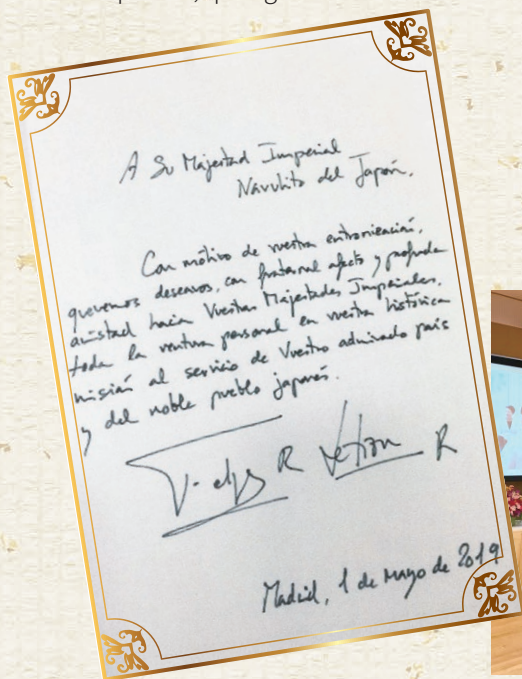 A Su Majestad Imperial
Naruhito del Japón.
Con motivo de vuestra entronización,
queremos desearos, con fraternal afecto y profunda
amistad hacia Vuestras Majestades Imperiales,
toda la ventura personal en vuestra histórica
misión al servicio de Vuestro admirado país
y del noble pueblo japonés.
Felipe R Letizia R
Madrid, 1 de mayo de 2019